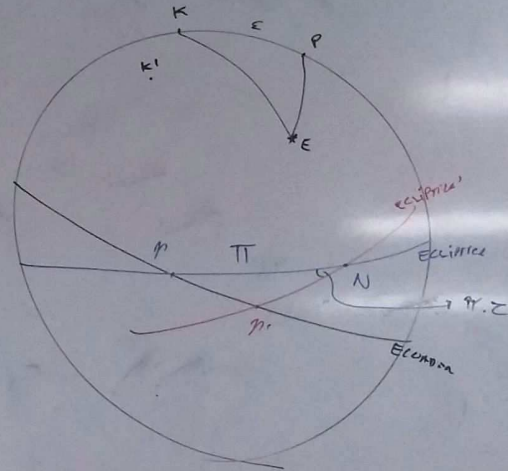 K
ε
P
K'
E
Ecliptica'
Π
Ecliptica
N
Ecuador